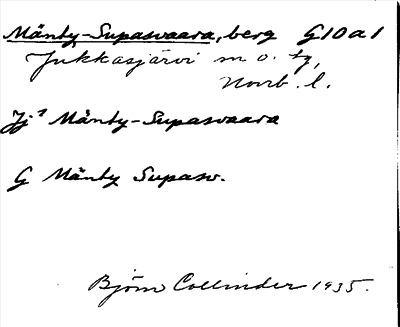 Mänty-Supasvaara, berg G10a1
Jukkasjärvi sn o. tg,
Norrb. l.
Jj² Mänty-Supasvaara
G Mänty Supasv.
Björn Collinder 1935.